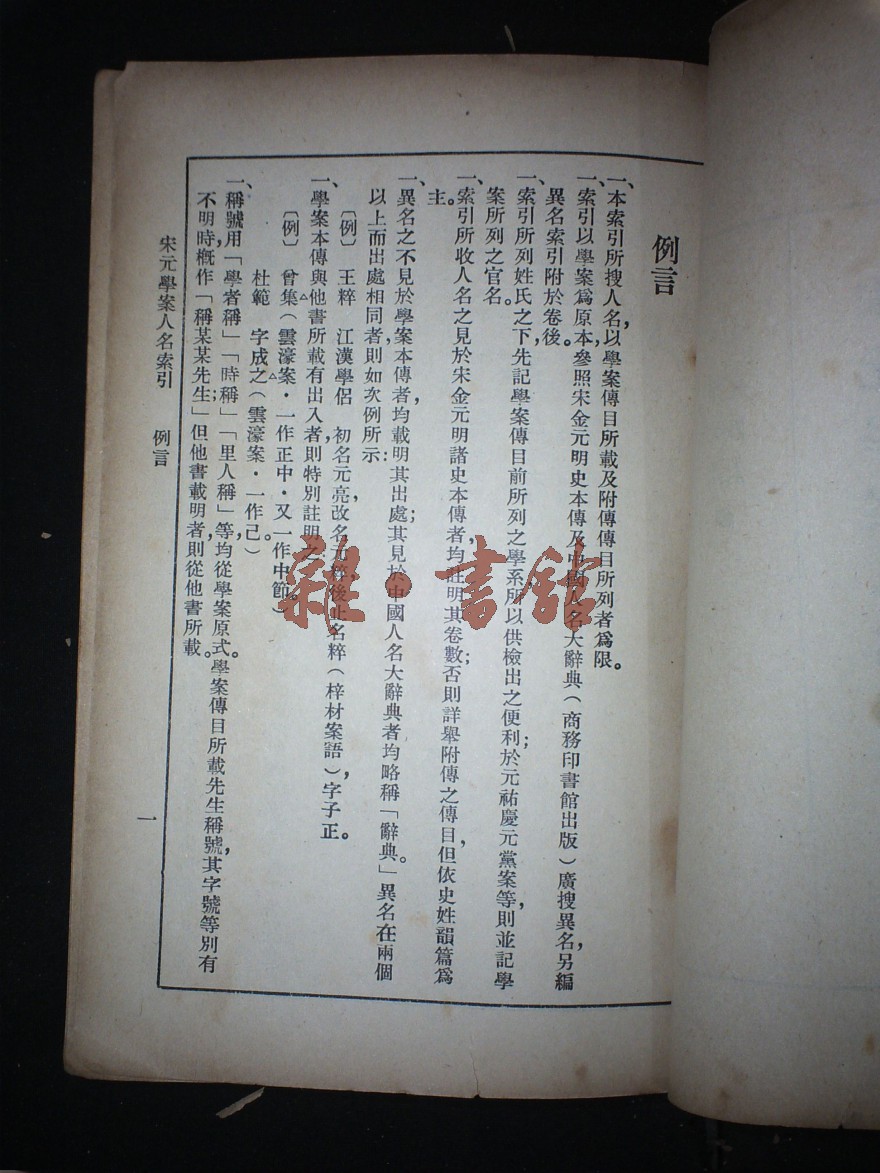 例言
一、本索引所搜人名，以學案傳目所載及附傳傳目所列者爲限。
一、索引以學案爲原本，參照宋金元明史本傳及中國人名大辭典（商務印書館出版）廣搜異名，另編
異名索引附於卷後。
一、索引所列姓氏之下，先記學案傳目前所列之學系，所以供檢出之便利；於元祐慶元黨案等，則並記學
案所列之官名。
一、索引所收人名之見於宋金元明諸史本傳者，均註明其卷數；否則詳舉附傳之傳目，但依史姓韻篇爲
主。
一、異名之不見於學案本傳者，均載明其出處；其見於中國人名大辭典者均略稱「辭典。」異名在兩個
以上而出處相同者，則如次例所示：
〔例〕　王粹　江漢學侶　初名元亮，改名元粹，後止名粹（梓材案語），字子正。
一、學案本傳與他書所載有出入者，則特別註明之：
〔例〕　曾集（雲濠案·一作正中·又一作中節。）
杜範　字成之（雲濠案·一作己。）
一、稱號用「學者稱」「時稱」「里人稱」等，均從學案原式。學案傳目所載先生稱號，其字號等別有
不明時，概作「稱某某先生」；但他書載明者，則從他書所載。
宋元學案人名索引　例言
一
雜·書館